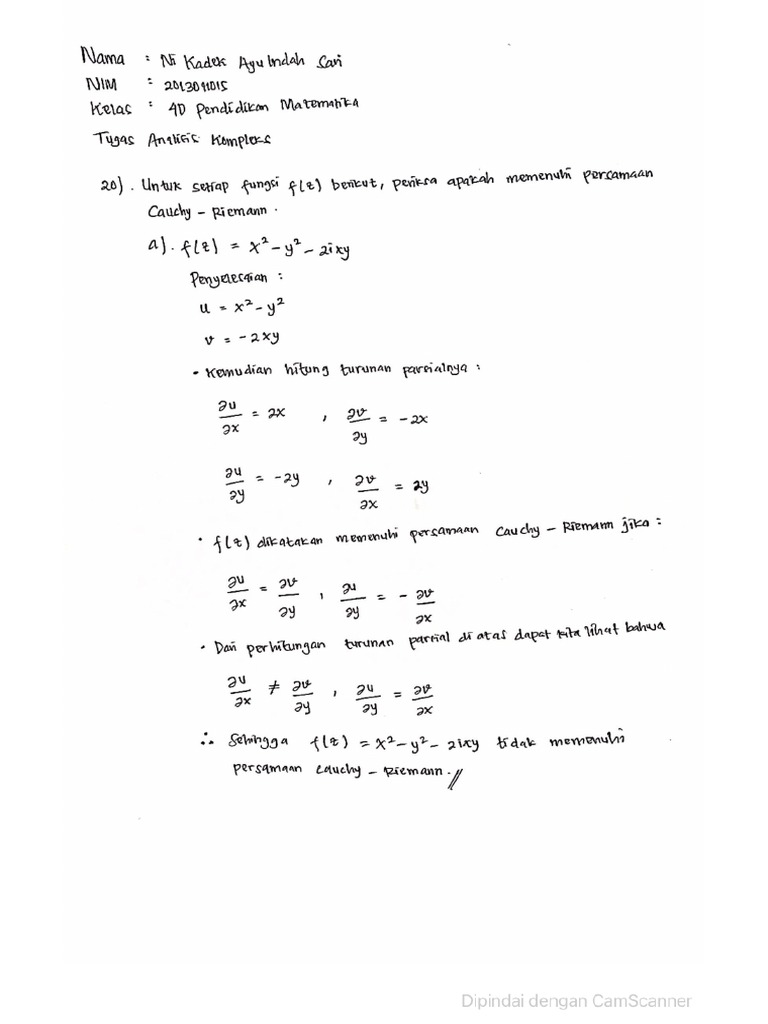 Nama : Ni Kadek Ayu Indah Sari
NIM : 2013011015
Kelas : 4D Pendidikan Matematika
Tugas Analisis Kompleks
20). Untuk setiap fungsi f(z) berikut, periksa apakah memenuhi persamaan
Cauchy – Riemann.
a). f(z) = x² – y² – 2ixy
Penyelesaian :
u = x² – y²
v = –2xy
• Kemudian hitung turunan parsialnya :
∂u/∂x = 2x , ∂v/∂y = –2x
∂u/∂y = –2y , ∂v/∂x = 2y
• f(z) dikatakan memenuhi persamaan Cauchy – Riemann jika :
∂u/∂x = ∂v/∂y , ∂u/∂y = – ∂v/∂x
• Dari perhitungan turunan parsial di atas dapat kita lihat bahwa
∂u/∂x ≠ ∂v/∂y , ∂u/∂y = ∂v/∂x
∴ Sehingga f(z) = x² – y² – 2ixy tidak memenuhi
persamaan Cauchy – Riemann. //
Dipindai dengan CamScanner